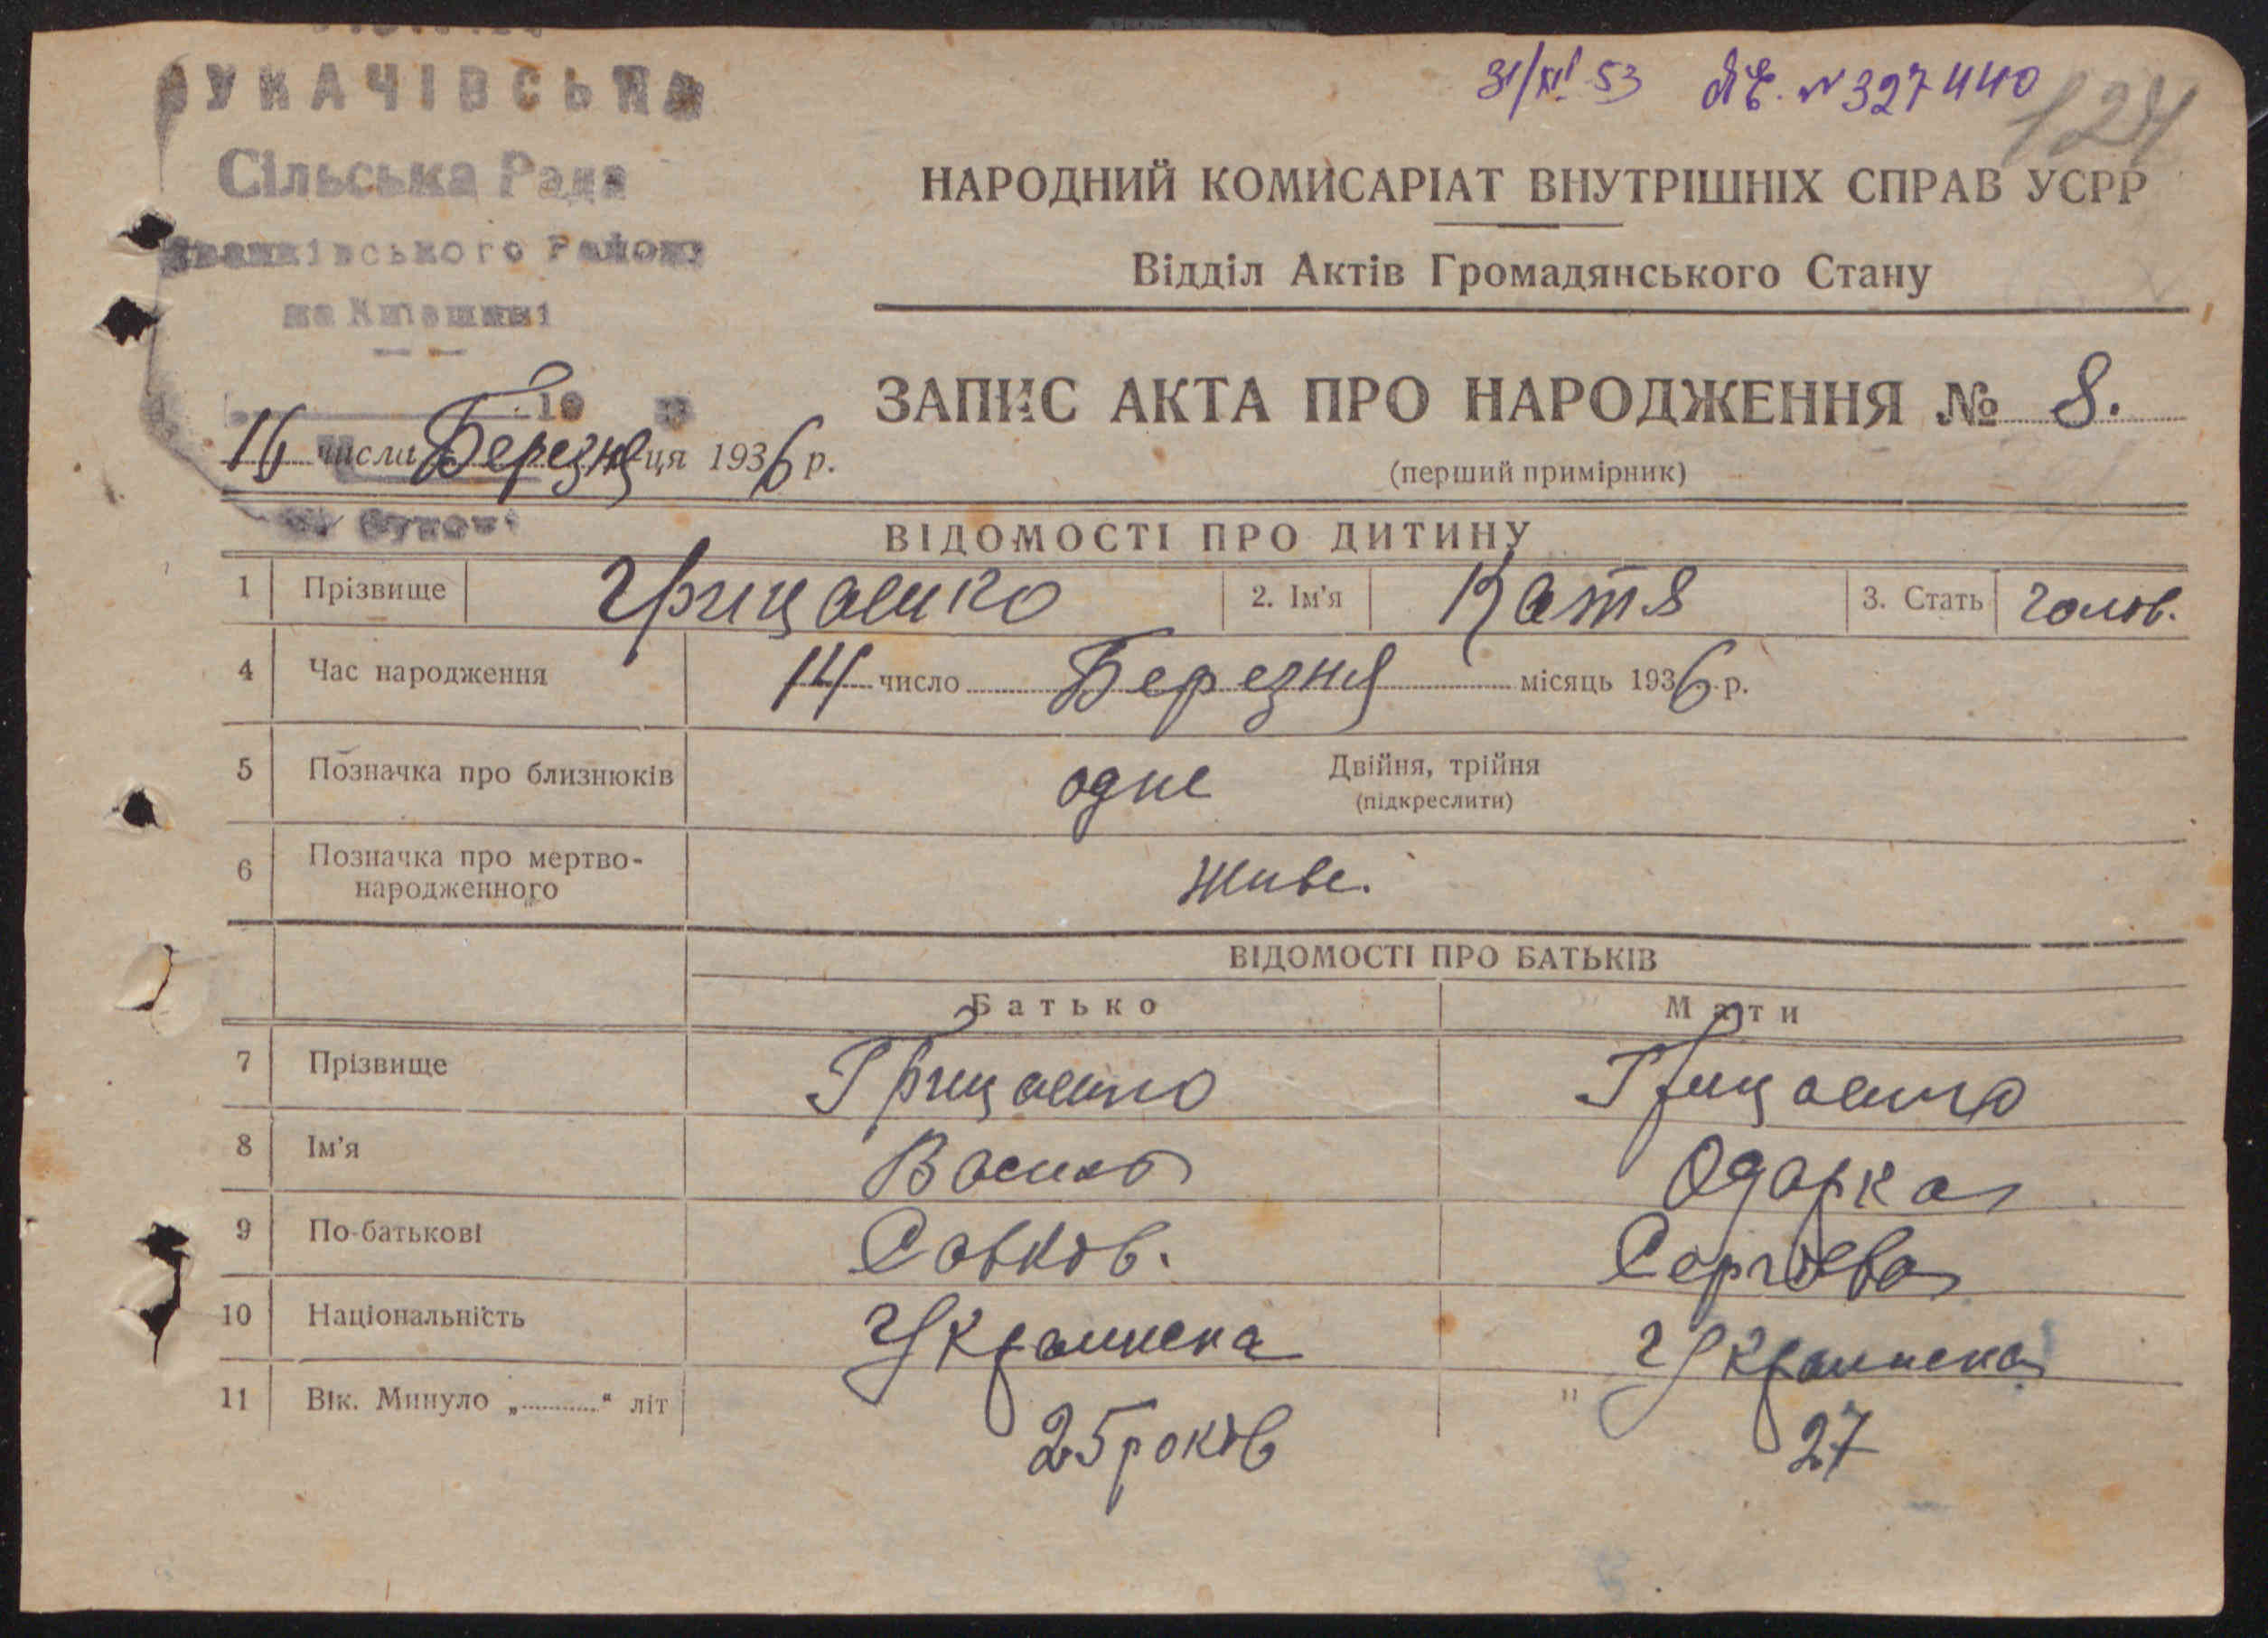 31/XII 53 № 327440
124
БУКАЧІВСЬКА
Сільська Рада
Іванківського Району
на Київщині
НАРОДНИЙ КОМИСАРІАТ ВНУТРІШНІХ СПРАВ УСРР
Відділ Актів Громадянського Стану
ЗАПИС АКТА ПРО НАРОДЖЕННЯ № 8.
(перший примірник)
16 числа Березня ця 1936 р.
ВІДОМОСТІ ПРО ДИТИНУ
1 Прізвище Грицаенко 2. Ім'я Катя 3. Стать Чолов.
4 Час народження 14 число Березня місяць 1936 р.
5 Позначка про близнюків одне Двійня, трійня
(підкреслити)
6 Позначка про мертво-
народженного живе.
ВІДОМОСТІ ПРО БАТЬКІВ
Батько Мати
7 Прізвище Грицаенко Грицаенко
8 Ім'я Василь Одарка
9 По-батькові Савков. Сергієва
10 Національність Украинска Украинска
11 Вік. Минуло „ “ літ 25 років " 27